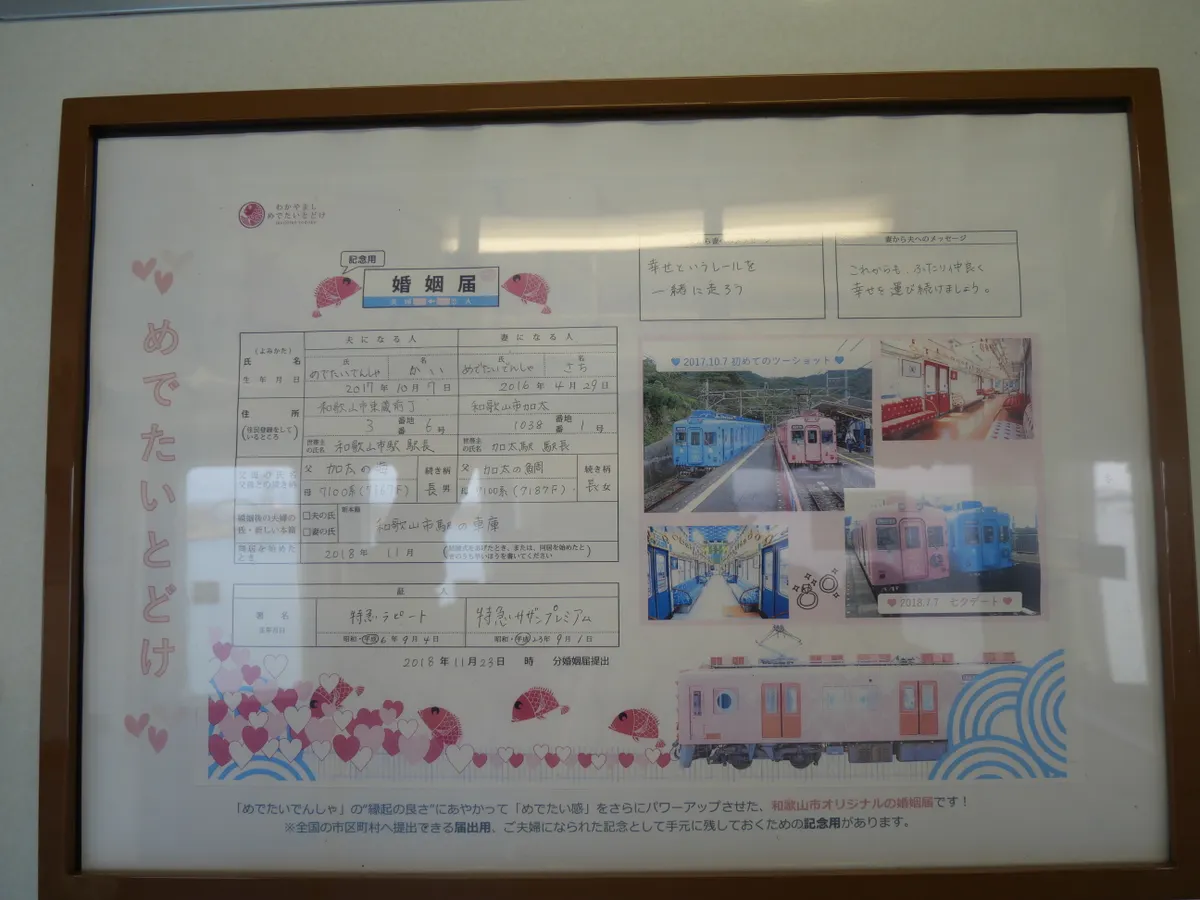 わかやまし
めでたいとどけ
めでたいとどけ
記念用
婚姻届
夫になる人
妻になる人
(よみかた)
氏 名
氏 名
氏 名
めでたいでんしゃ かい
めでたいでんしゃ さち
生年月日
2017年10月7日
2016年4月29日
住所
(住民登録をしているところ)
和歌山市東蔵前丁
3 番地 番 6号
和歌山市加太
1038 番地 番 1号
世帯主の氏名 和歌山市駅 駅長
世帯主の氏名 加太駅 駅長
父 加太の海
続き柄
長男
父 加太の鯛
続き柄
長女
母 7100系(7167F)
母 7100系(7187F)
婚姻後の夫婦の氏・新しい本籍
□夫の氏
□妻の氏
新本籍
和歌山市駅の車庫
同居を始めたとき
2018年11月
(結婚式をあげたとき、または、同居を始めたときのうち早いほうを書いてください)
証人
署名
生年月日
特急ラピート
特急サザンプレミアム
昭和・平成6年9月4日
昭和・平成23年9月1日
2018年11月23日 時 分婚姻届提出
幸せというレールを
一緒に走ろう
妻から夫へのメッセージ
これからも、ふたり仲良く
幸せを運び続けましょう。
2017.10.7 初めてのツーショット
2018.7.7 七夕デート
「めでたいでんしゃ」の“縁起の良さ”にあやかって「めでたい感」をさらにパワーアップさせた、和歌山市オリジナルの婚姻届です!
※全国の市区町村へ提出できる届出用、ご夫婦になられた記念として手元に残しておくための記念用があります。